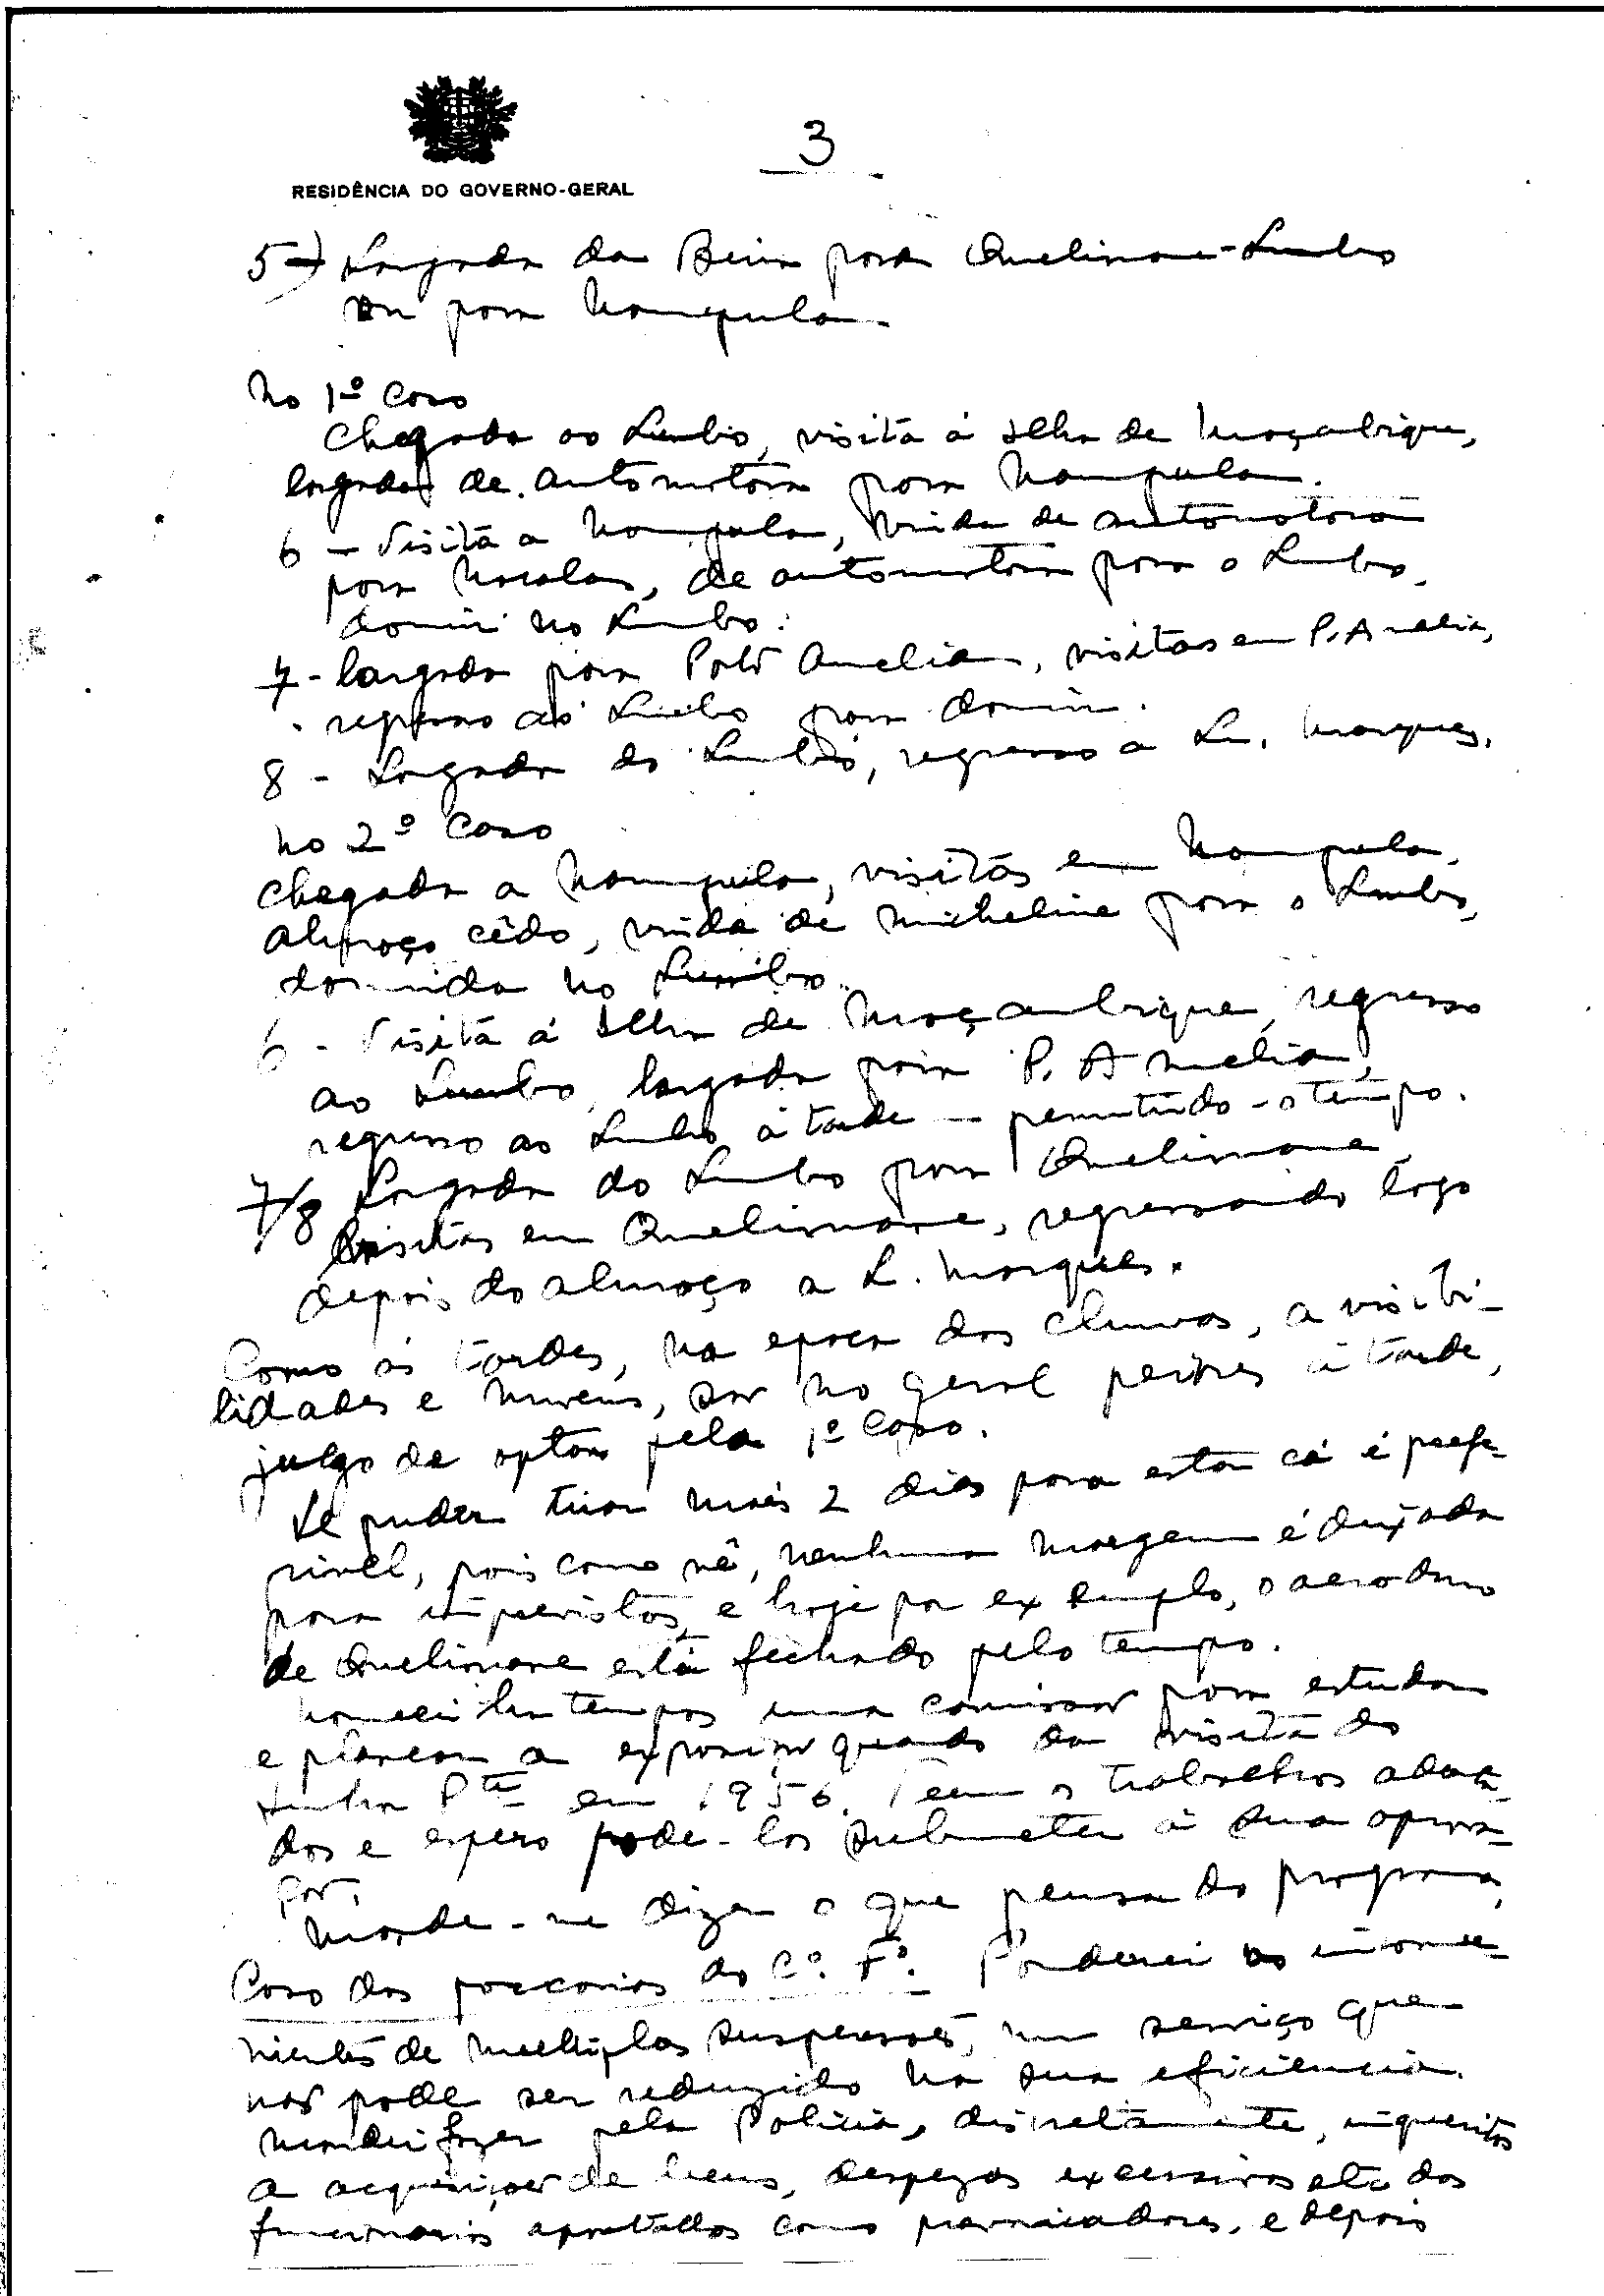 3
RESIDÊNCIA DO GOVERNO-GERAL
5-) Largada da Beira para Quelimane-Lumbo
ou para Nampula.
No 1º Caso
Chegada ao Lumbo, visita á Ilha de Moçambique,
largada de automotora para Nampula.
6 - Visita a Nampula, vinda de automotora
para Nacala, de automotora para o Lumbo,
dormir no Lumbo.
7 - largada para Porto Amelia, visitas em P. Amelia,
regresso ao Lumbo para dormir.
8 - Largada do Lumbo, regresso a L. Marques.
No 2º Caso
Chegada a Nampula, visitas em Nampula,
almoço cêdo, vinda de micheline para o Lumbo,
dormida no Lumbo.
6 - Visita á Ilha de Moçambique, regresso
ao Lumbo, largada para P. Amelia,
regresso ao Lumbo á tarde - permitindo-o tempo.
7/8 Largada do Lumbo para Quelimane
Visitas em Quelimane, regressando logo
depois do almoço a L. Marques.
Como as tardes, na epoca das chuvas, a visibi-
lidades e nuvens, são no geral peores á tarde,
julgo de optar pelo 1º Caso.
Se puder tirar mais 2 dias para estar cá é prefe-
rivel, pois como vê, nenhuma margem é deixada
para imprevistos, e hoje por exemplo, o aerodromo
de Quelimane está fechado pelo tempo.
Nomeei ha tempos uma comissão para estudar
e planear a exposição quando da visita do
Senhor Pte em 1956. Tem os trabalhos adean-
dos e espero pode-los submeter á sua aprova-
ção.
Mande-me dizer o que pensa do programa,
Caso dos do Cº. Fº. Ponderei os inconve-
nientes de multiplas suspensões, num serviço que
não pode ser reduzido na sua eficiencia.
Mandei fazer pela Policia, discretamente, inqueritos
a acquisições de bens, despezas excessivas etc dos
funcionarios apontados como prevaricadores, e depois